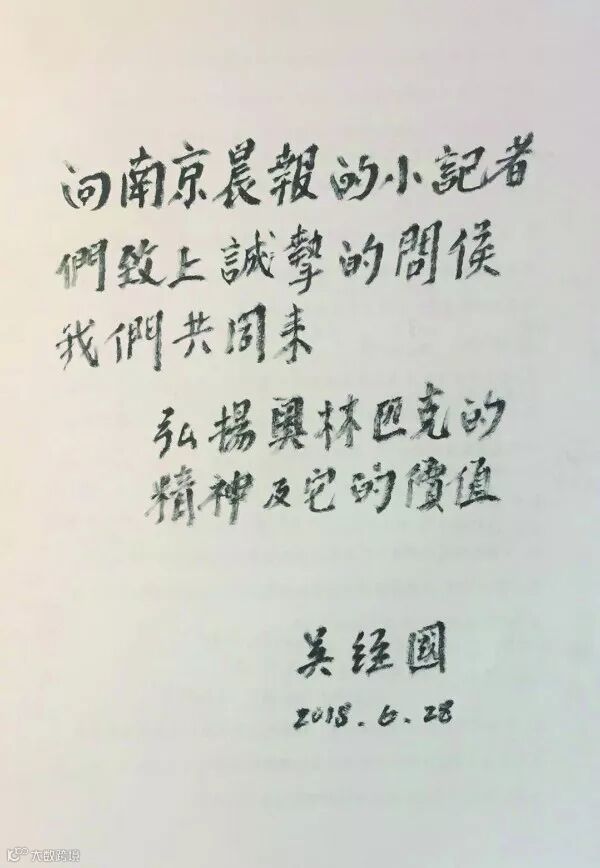 向南京晨報的小記者
們致上誠摯的問候
我們共同来
弘揚奧林匹克的
精神及它的價值
吴经國
2018.6.28
大数跨境